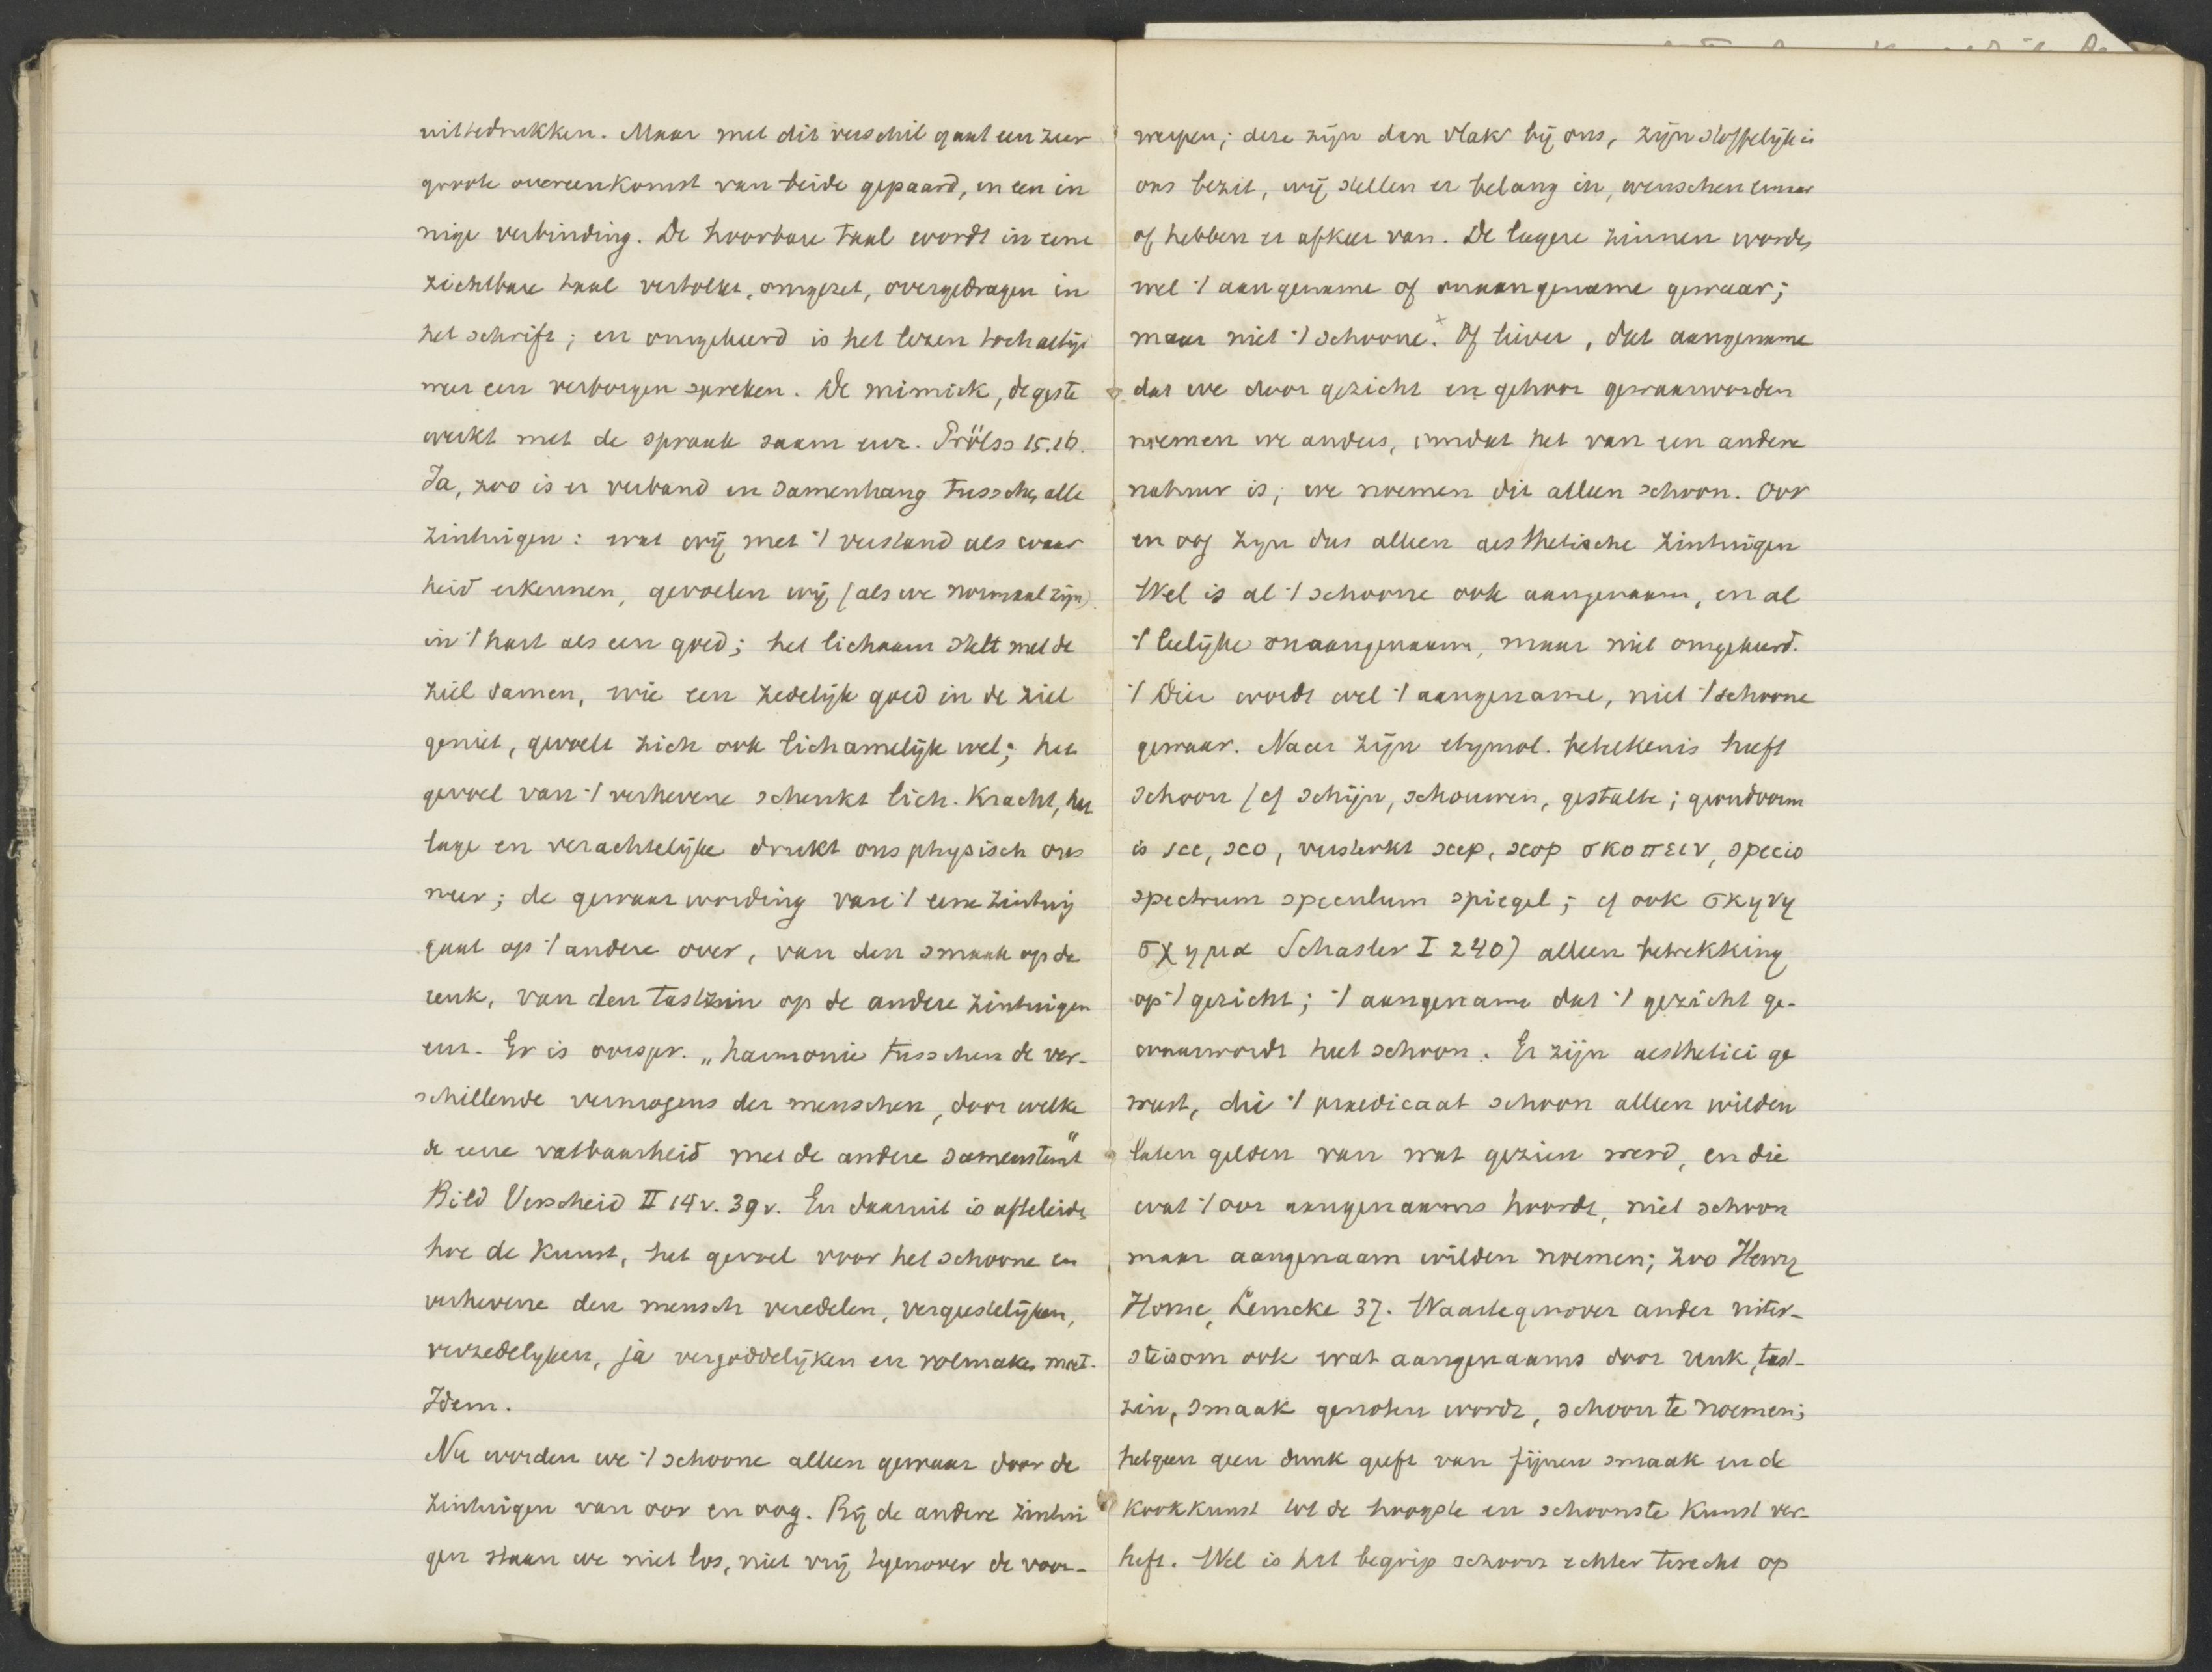 uittedrukken. Maar met dit verschil gaat een zeer
groote overeenkomst van beide gepaard, en een in
nige verbinding. De hoorbare taal wordt in eene
zichtbare taal vertolkt, omgezet, overgedragen in
het schrift; en omgekeerd is het lezen toch altijd
weer een verborgen spreken. De mimiek, de geste
werkt met de spraak saam enz. Prölss 15.16.
Ja, zoo is er verband en samenhang tusschen alle
zintuigen: wat wij met 't verstand als waar
heid erkennen, gevoelen wij (als we normaal zijn)
in 't hart als een goed; het lichaam stelt met de
ziel samen, wie een zedelijk goed in de ziel
geniet, gevoelt zich ook lichamelijk wel; het
gevoel van 't verhevene schenkt lich. kracht, het
lage en verachtelijke drukt ons physisch ons
neer; de gewaarwording van 't eene zintuig
gaat op 't andere over, van den smaak op de
reuk, van den tastzin op de andere zintuigen
enz. Er is oorspr. „harmonie tusschen de ver-
schillende vermogens der menschen, door welke
de eene vatbaarheid met de andere samenstemt"
Bild Verscheid II 14v. 39v. En daaruit is afteleiden
hoe de kunst, het gevoel voor het schoone en
verhevene den mensch veredelen, vergeestelijken,
verzedelijken, ja vergoddelijken en volmaken moet.
Idem.
Nu worden we 't schoone alleen gewaar door de
zintuigen van oor en oog. Bij de andere zintui
gen staan we niet los, niet vrij tegenover de voor-
werpen; deze zijn dan vlak bij ons, zijn stoffelijk in
ons bezit, wij stellen er belang in, wenschen ernaar
of hebben er afkeer van. De lagere zinnen worden
wel 't aangename of onaangename gewaar;
maar niet 't schoone.× Of liever, dat aangename
dat we door gezicht en gehoor gewaarworden
noemen we anders, omdat het van een andere
natuur is; we noemen dit alleen schoon. Oor
en oog zijn dus alleen aesthetische zintuigen
Wel is al 't schoone ook aangenaam, en al
't leelijke onaangenaam, maar niet omgekeerd.
't Dier wordt wel 't aangename, niet 't schoone
gewaar. Naar zijn etymol. beteekenis heeft
schoon (cf schijn, schouwen, gestalte; grondvorm
is sce, sco, versterkt scep, scop σκοπειν, specio
spectrum speculum spiegel; cf ook σκηνη
σχημα Schasler I 240) alleen betrekking
op 't gezicht; 't aangename dat 't gezicht ge-
waarwordt heet schoon. Er zijn aesthetici ge
weest, die 't praedicaat schoon alleen wilden
laten gelden van wat gezien werd, en die
wat 't oor aangenaams hoorde, niet schoon
maar aangenaam wilden noemen; zoo Henry
Home, Lemcke 37. Waartegenover ander uiter-
ste is om ook wat aangenaams door reuk, tast-
zin, smaak genoten wordt, schoon te noemen;
hetgeen geen dunk geeft van fijnen smaak en de
kookkunst tot de hoogste en schoonste kunst ver-
heft. Wel is het begrip schoon echter terecht op